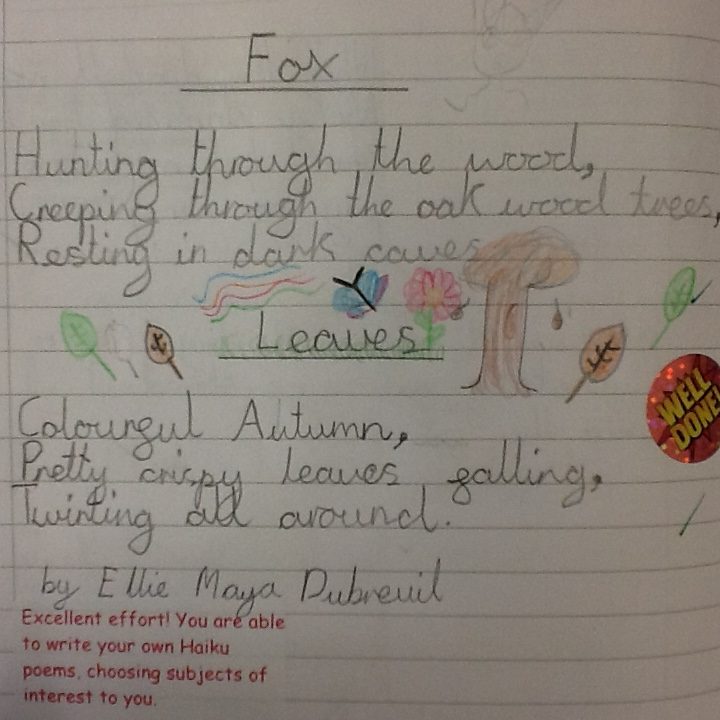 Fox
Hunting through the wood,
Creeping through the oak wood trees,
Resting in dark caves
Leaves
Colourful Autumn,
WELL
DONE!
Pretty crispy leaves falling,
Twirling all around.
by Ellie Maya Dubreuil
Excellent effort! You are able
to write your own Haiku
poems, choosing subjects of
interest to you.